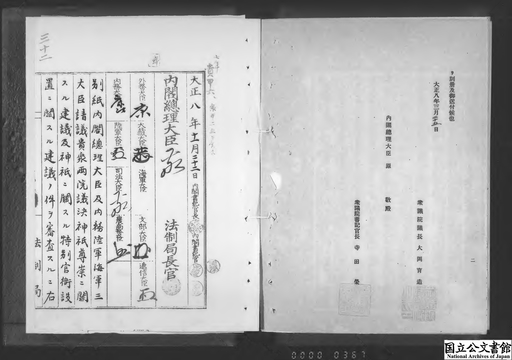 ヲ別冊及御送付候也
大正八年三月
日
内閣總理大臣 原 敬殿
衆議院議長 大岡育造
衆議院書記官長 寺田榮
二
三十二
大正八年
月二十二日
内閣書記官長
内閣書記官
内閣總理大臣
法制局長官
外務大臣
大藏大臣
海軍大臣
文部大臣
遞信大臣
内務大臣
陸軍大臣
司法大臣
別紙内閣總理大臣及内務陸軍海軍三
大臣請議貴衆兩院議決神祇尊崇ニ關
スル建議及神祇ニ關スル特別官衙設
置ニ關スル建議ノ件ヲ審査スルニ右
法制局
0000 0367
国立公文書館
National Archives of Japan